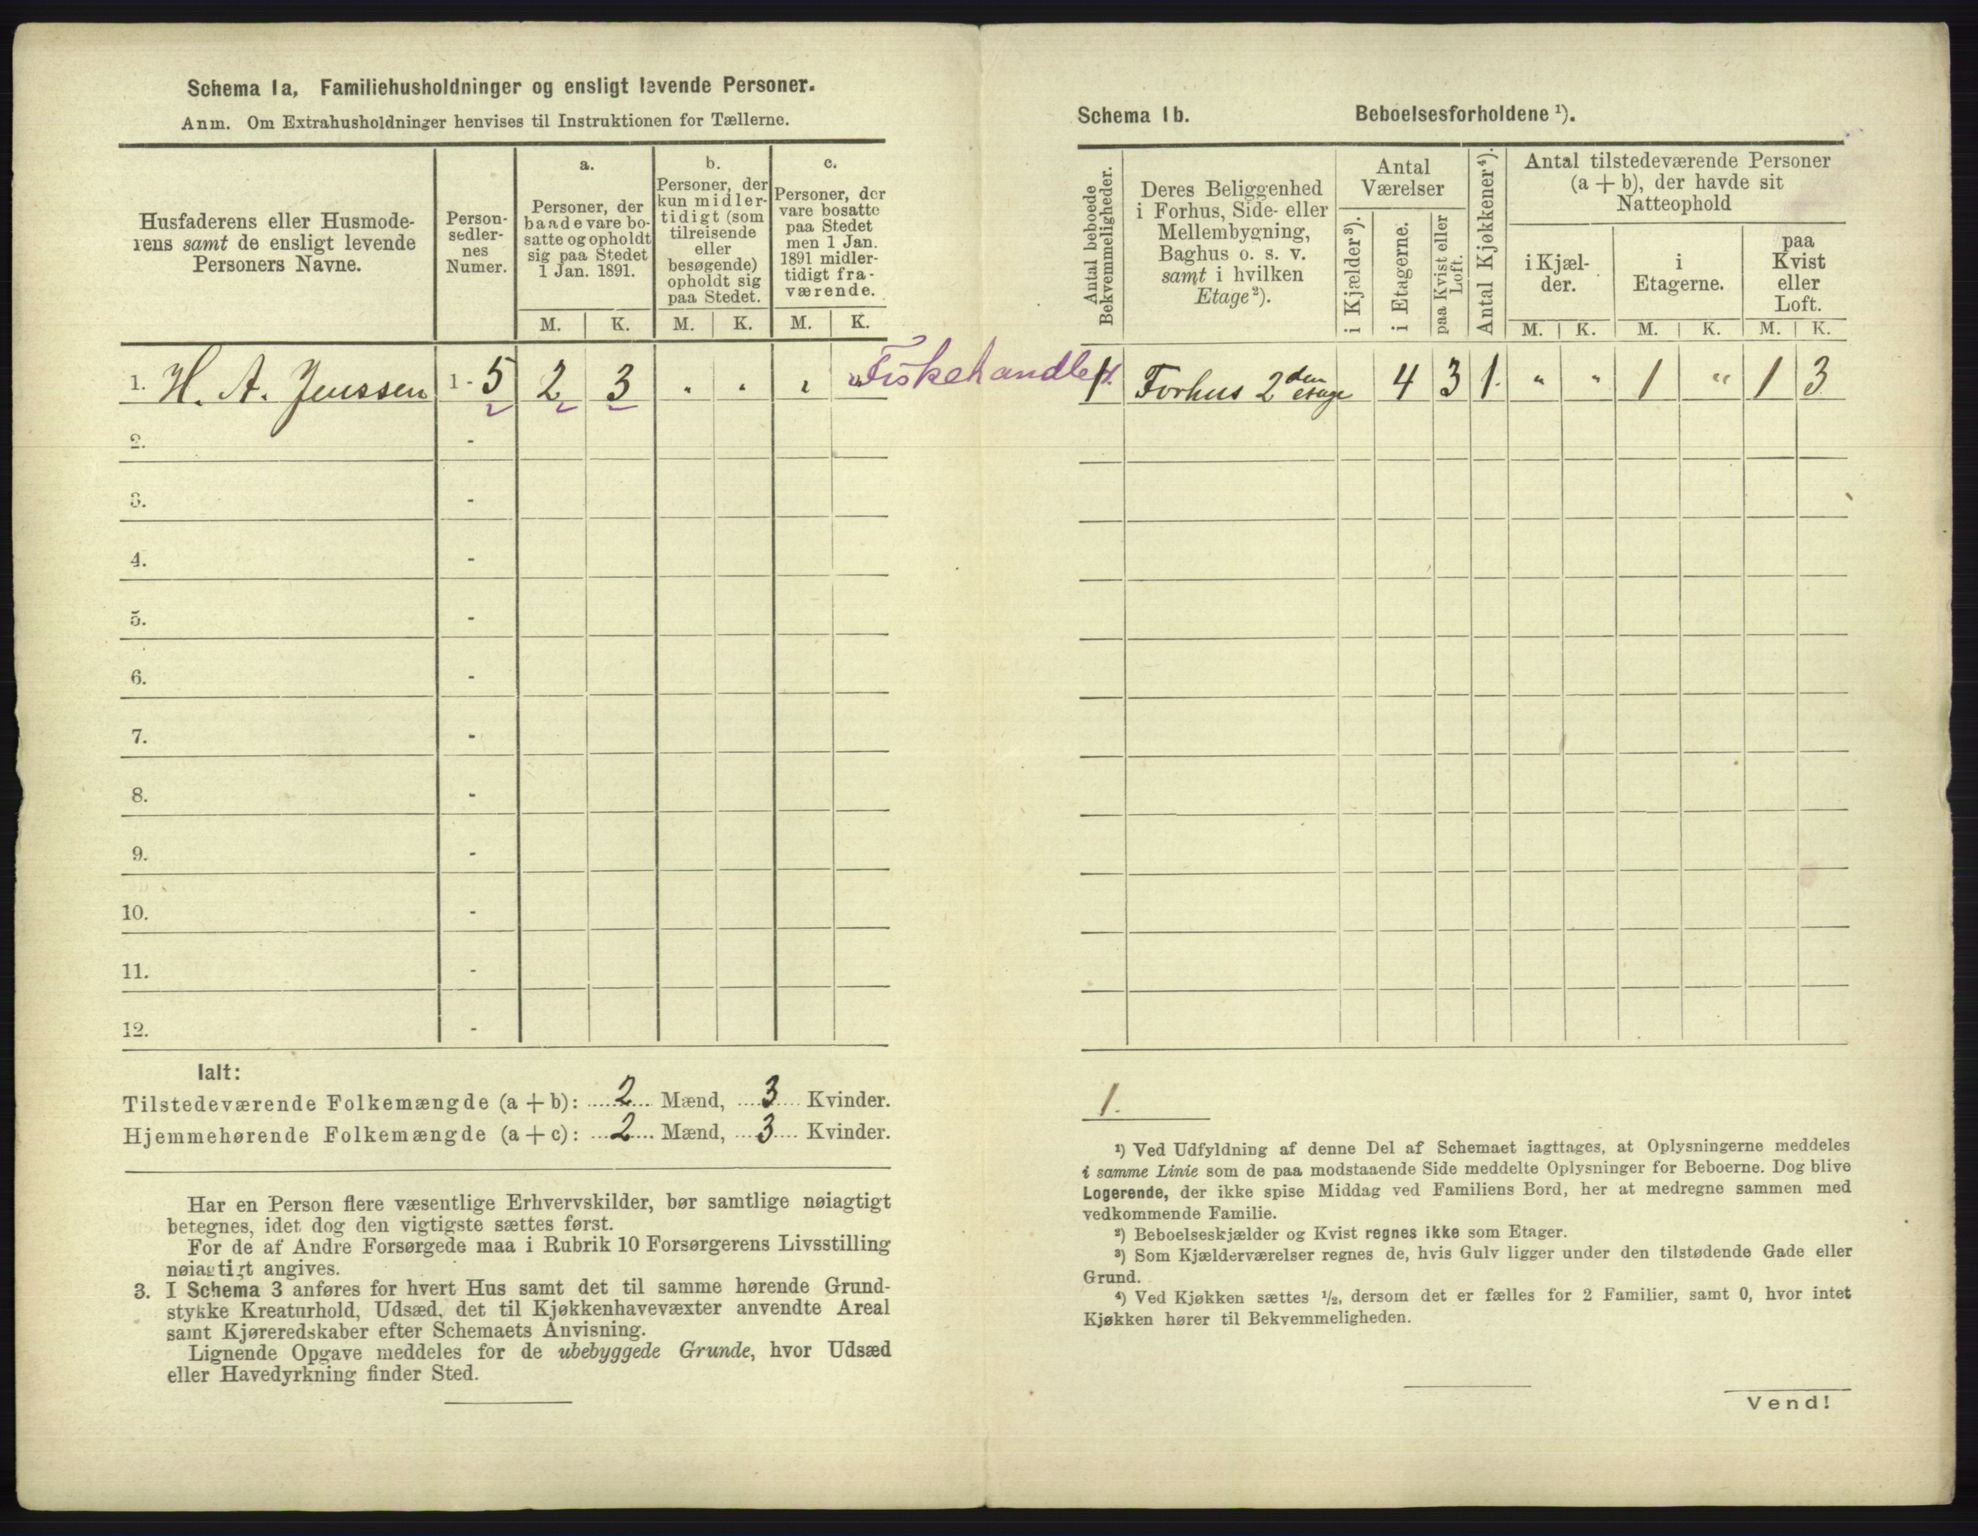 Schema 1a, Familiehusholdninger og ensligt levende Personer.
Anm. Om Extrahusholdninger henvises til Instruktionen for Tællerne.
Husfaderens eller Husmode-
rens samt de ensligt levende
Personers Navne.
Person-
sedler-
nes
Numer.
a.
Personer, der
baade vare bo-
satte og opholdt
sig paa Stedet
1 Jan. 1891.
b.
Personer, der
kun midler-
tidigt (som
tilreisende
eller
besøgende)
opholdt sig
paa Stedet.
c.
Personer, der
vare bosatte
paa Stedet
men 1 Jan.
1891 midler-
tidigt fra-
værende.
M. K. M. K. M. K.
1. H. A. Jenssen 1 - 5 2 3 " " " " Fiskehandler.
2. -
3. -
4. -
5. -
6. -
7. -
8. -
9. -
10. -
11. -
12. -
Ialt:
Tilstedeværende Folkemængde (a + b): 2 Mænd, 3 Kvinder.
Hjemmehørende Folkemængde (a + c): 2 Mænd, 3 Kvinder.
Har en Person flere væsentlige Erhvervskilder, bør samtlige nøiagtigt
betegnes, idet dog den vigtigste sættes først.
For de af Andre Forsørgede maa i Rubrik 10 Forsørgerens Livsstilling
nøiagtigt angives.
3. I Schema 3 anføres for hvert Hus samt det til samme hørende Grund-
stykke Kreaturhold, Udsæd, det til Kjøkkenhavevæxter anvendte Areal
samt Kjøreredskaber efter Schemaets Anvisning.
Lignende Opgave meddeles for de ubebyggede Grunde, hvor Udsæd
eller Havedyrkning finder Sted.
Schema 1b. Beboelsesforholdene ¹).
Antal beboede
Bekvemmeligheder.
Deres Beliggenhed
i Forhus, Side- eller
Mellembygning,
Baghus o. s. v.
samt i hvilken
Etage²).
Antal
Værelser
i Kjælder³).
i Etagerne.
paa Kvist eller
Loft.
Antal Kjøkkener⁴).
Antal tilstedeværende Personer
(a + b), der havde sit
Natteophold
i Kjæl-
der.
i
Etagerne.
paa
Kvist
eller
Loft.
M. K. M. K. M. K.
1 Forhus 2den etage 4 3 1. " " 1 " 1 3
1.
¹) Ved Udfyldning af denne Del af Schemaet iagttages, at Oplysningerne meddeles
i samme Linie som de paa modstaaende Side meddelte Oplysninger for Beboerne. Dog blive
Logerende, der ikke spise Middag ved Familiens Bord, her at medregne sammen med
vedkommende Familie.
²) Beboelseskjælder og Kvist regnes ikke som Etager.
³) Som Kjælderværelser regnes de, hvis Gulv ligger under den tilstødende Gade eller
Grund.
⁴) Ved Kjøkken sættes ½, dersom det er fælles for 2 Familier, samt 0, hvor intet
Kjøkken hører til Bekvemmeligheden.
Vend!